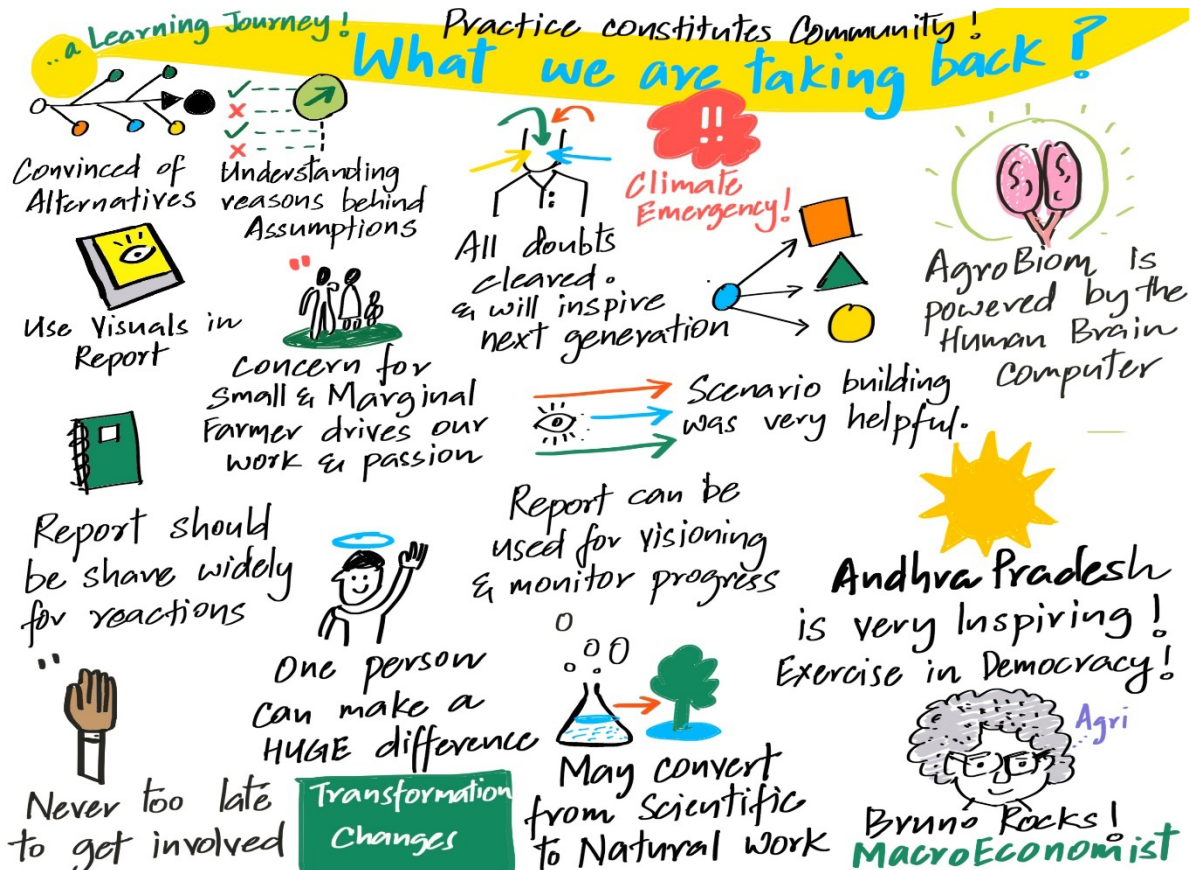 ..a Learning Journey!
Practice constitutes Community!
What we are taking back?
Convinced of
Alternatives
Understanding
reasons behind
Assumptions
All doubts
cleared.
& will inspire
next generation
!!
Climate
Emergency!
AgroBiom is
powered by the
Human Brain
Computer
Use Visuals in
Report
Concern for
Small & Marginal
Farmer drives our
work & passion
Scenario building
was very helpful.
Report should
be share widely
for reactions
One person
can make a
HUGE difference
Report can be
used for visioning
& monitor progress
Andhra Pradesh
is very Inspiring!
Exercise in Democracy!
Never too late
to get involved
Transformation
Changes
May convert
from Scientific
to Natural work
Agri
Bruno Rocks!
MacroEconomist